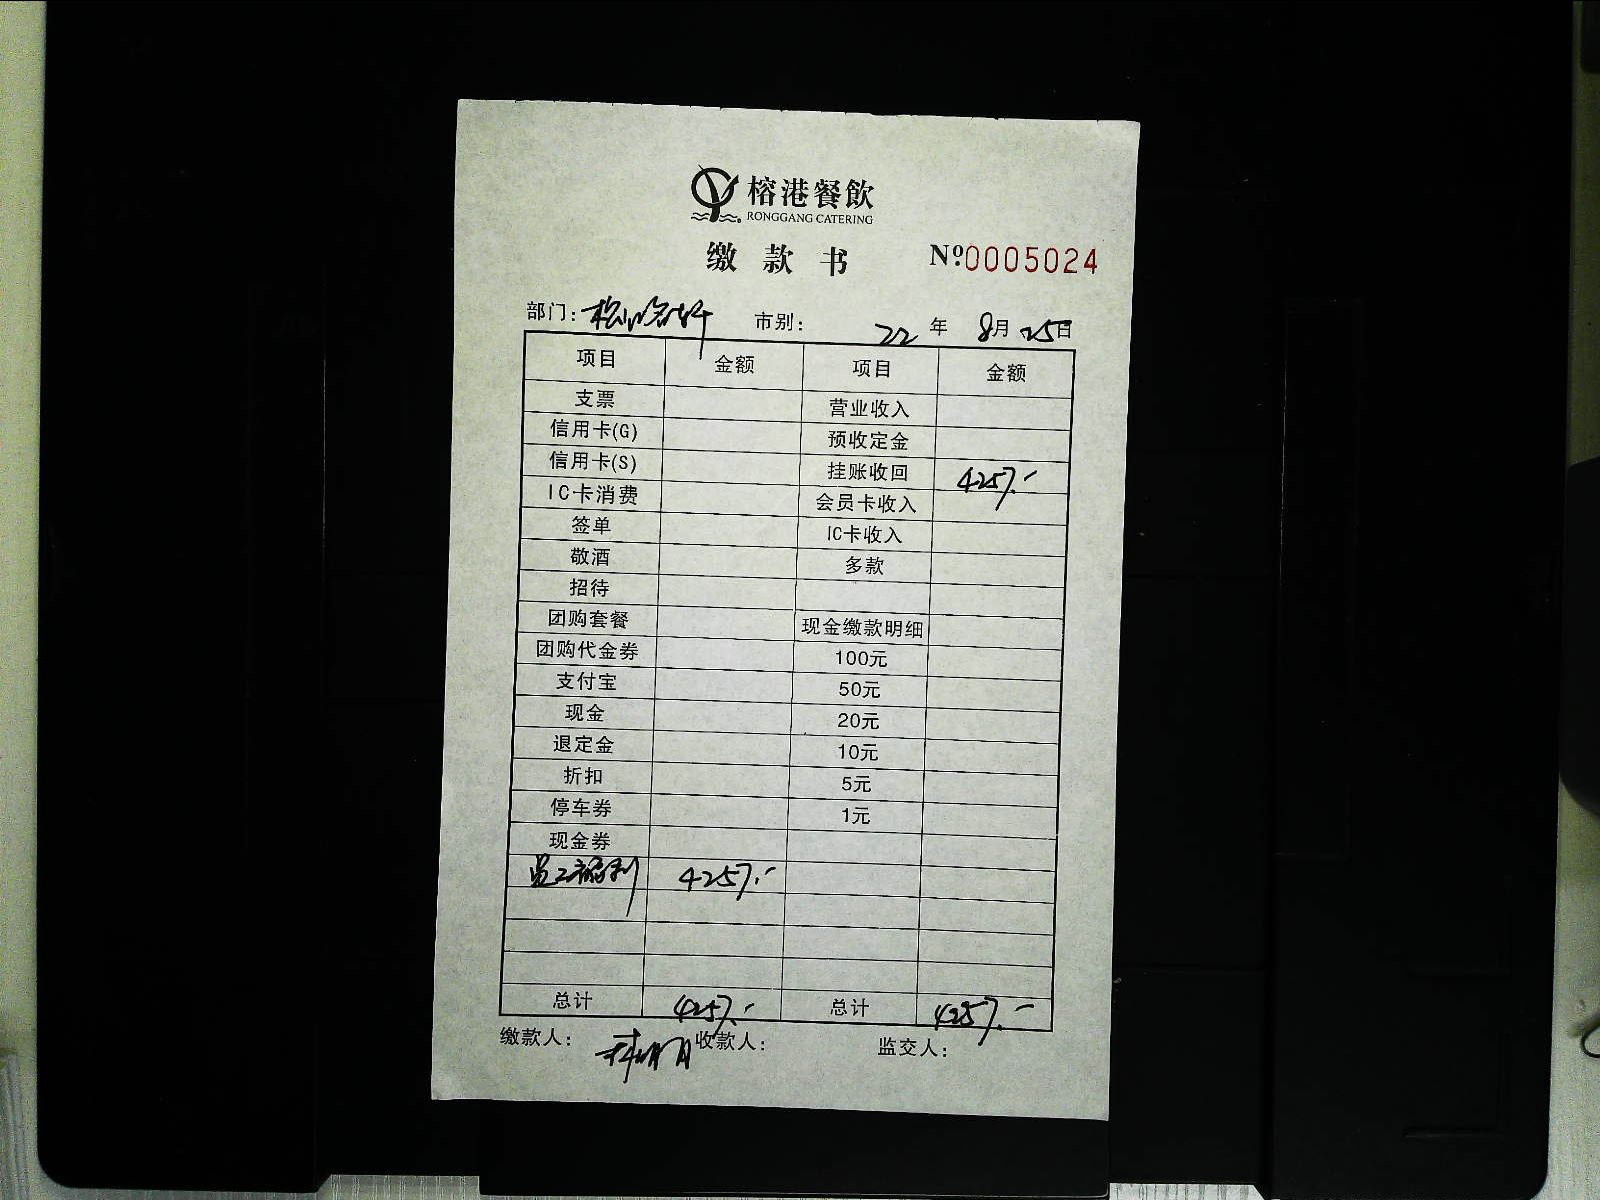 榕港餐飲
RONGGANG CATERING
缴款书 Nº0005024
部门: 市别: 22年 8月 25日
项目 金额 项目 金额
支票 营业收入
信用卡(G) 预收定金
信用卡(S) 挂账收回 4257.-
IC卡消费 会员卡收入
签单 IC卡收入
敬酒 多款
招待
团购套餐 现金缴款明细
团购代金券 100元
支付宝 50元
现金 20元
退定金 10元
折扣 5元
停车券 1元
现金券
员工福利 4257.-
总计 4257.- 总计 4257.-
缴款人: 收款人: 监交人: